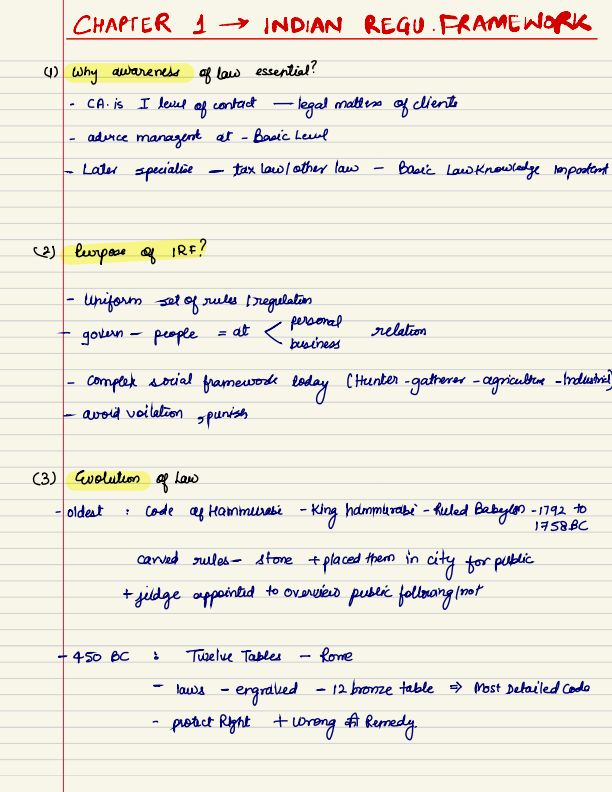 CHAPTER 1 → INDIAN REGU. FRAMEWORK
(1) Why awareness of law essential?
- CA. is I level of contact — legal matters of clients
- advice managent at - Basic Level
- Later specialise — tax law/other law - Basic Law Knowledge Important
(2) Purpose of IRF?
- Uniform set of rules / regulation
- govern - people = at < personal business relation
- Complex social framework today (Hunter - gatherer - agriculture - Industrial)
- avoid voilation, punish
(3) Evolution of Law
- oldest : Code of Hammurabi - King hammurabi - Ruled Babylon - 1792 to
1758 BC
carved rules - stone + placed them in city for public
+ judge appointed to overview public following/not
- 450 BC : Twelve Tables - Rome
- laws - engraved - 12 bronze table ⇒ Most Detailed Code
- protect Right + Wrong Remedy.